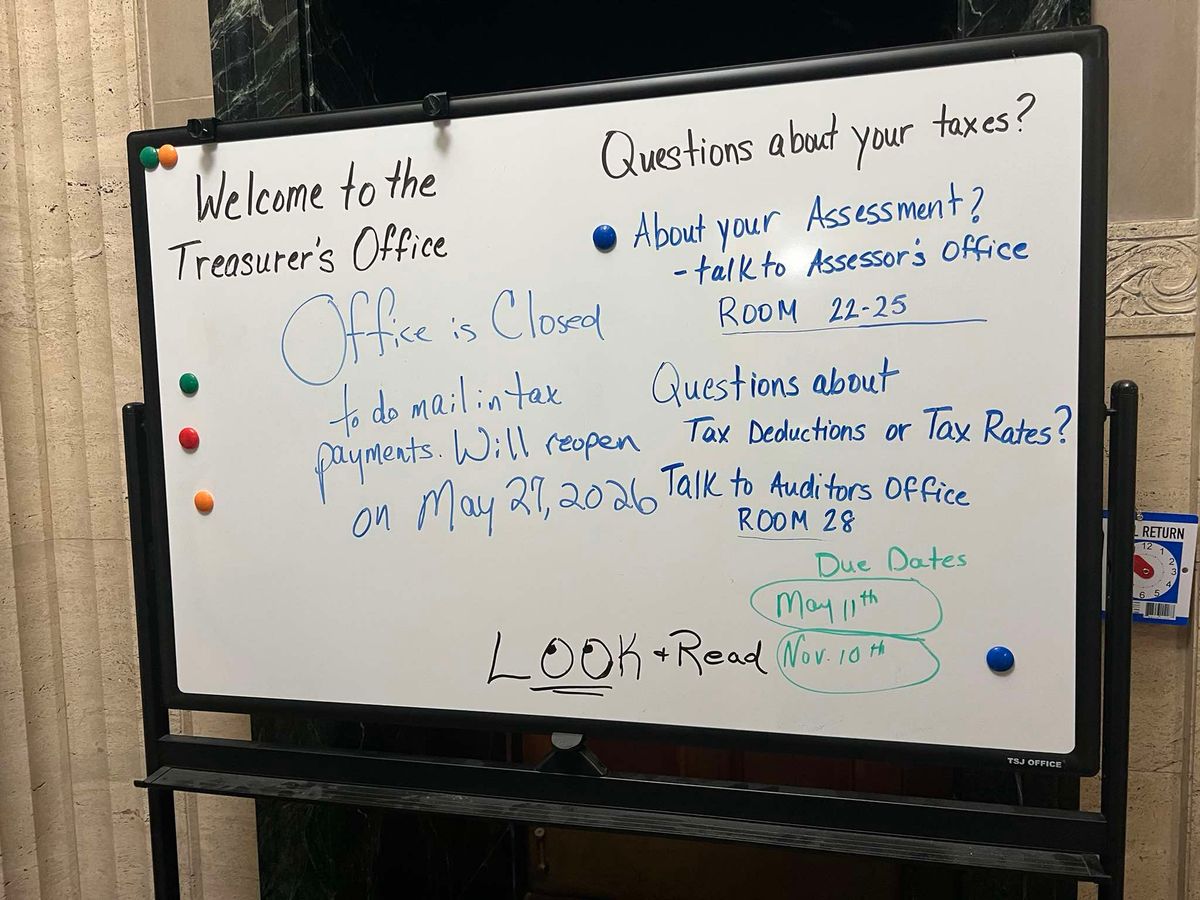 Welcome to the
Treasurer's Office
Office is Closed
to do mail in tax
payments. Will reopen
on May 27, 2026
Questions about your taxes?
About your Assessment?
- talk to Assessor's Office
ROOM 22-25
Questions about
Tax Deductions or Tax Rates?
Talk to Auditors Office
ROOM 28
Due Dates
May 11th
Nov. 10th
LOOK + Read
TSJ OFFICE
L RETURN
12
1
2
3
4
5
6